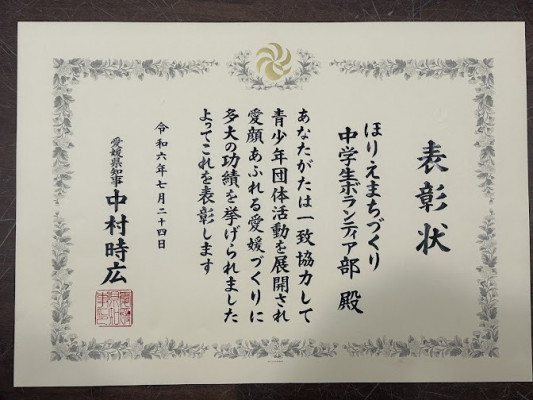 表彰状
ほりえまちづくり
中学生ボランティア部 殿
あなたがたは一致協力して
青少年団体活動を展開され
愛顔あふれる愛媛づくりに
多大の功績を挙げられました
よってこれを表彰します
令和六年七月二十四日
愛媛県知事 中村時広